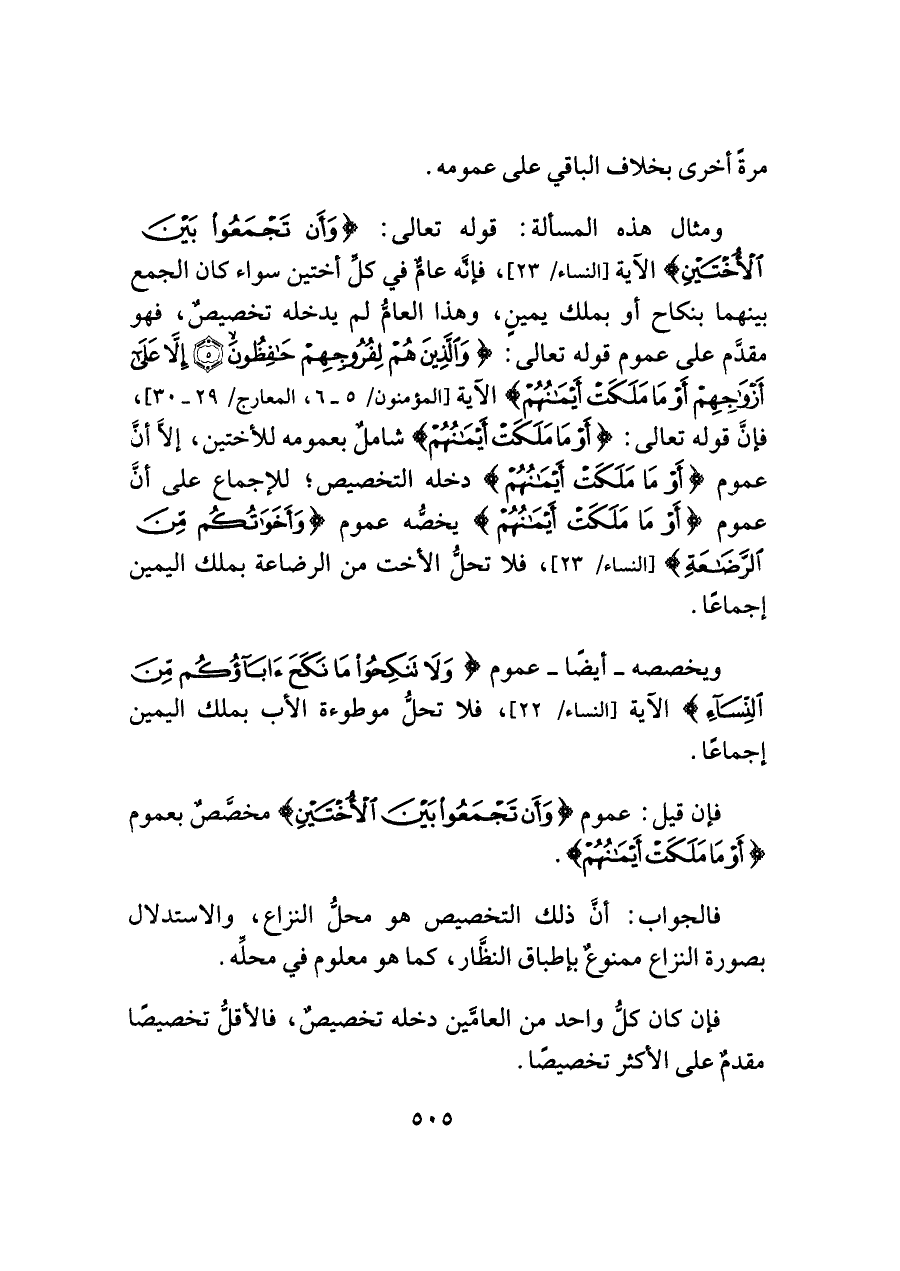 مرةً أخرى بخلاف الباقي على عمومه.
ومثال هذه المسألة: قوله تعالى: ﴿وَأَن تَجۡمَعُواْ بَيۡنَ
ٱلۡأُخۡتَيۡنِ﴾ الآية [النساء/ ٢٣]، فإنَّه عامٌّ في كلِّ أختين سواء كان الجمع
بينهما بنكاح أو بملك يمينٍ، وهذا العامُّ لم يدخله تخصيصٌ، فهو
مقدَّم على عموم قوله تعالى: ﴿وَٱلَّذِينَ هُمۡ لِفُرُوجِهِمۡ حَٰفِظُونَۙ ۝٥ إِلَّا عَلَىٰٓ
أَزۡوَٰجِهِمۡ أَوۡ مَا مَلَكَتۡ أَيۡمَٰنُهُمۡ﴾ الآية [المؤمنون/ ٥ ـ ٦، المعارج/ ٢٩ ـ ٣٠]،
فإنَّ قوله تعالى: ﴿أَوۡ مَا مَلَكَتۡ أَيۡمَٰنُهُمۡ﴾ شاملٌ بعمومه للأختين، إلاَّ أنَّ
عموم ﴿أَوۡ مَا مَلَكَتۡ أَيۡمَٰنُهُمۡ﴾ دخله التخصيص؛ للإجماع على أنَّ
عموم ﴿أَوۡ مَا مَلَكَتۡ أَيۡمَٰنُهُمۡ﴾ يخصُّه عموم ﴿وَأَخَوَٰتُكُم مِّنَ
ٱلرَّضَٰعَةِ﴾ [النساء/ ٢٣]، فلا تحلُّ الأخت من الرضاعة بملك اليمين
إجماعًا.
ويخصصه ـ أيضًا ـ عموم ﴿وَلَا تَنكِحُواْ مَا نَكَحَ ءَابَآؤُكُم مِّنَ
ٱلنِّسَآءِ﴾ الآية [النساء/ ٢٢]، فلا تحلُّ موطوءة الأب بملك اليمين
إجماعًا.
فإن قيل: عموم ﴿وَأَن تَجۡمَعُواْ بَيۡنَ ٱلۡأُخۡتَيۡنِ﴾ مخصَّصٌ بعموم
﴿أَوۡ مَا مَلَكَتۡ أَيۡمَٰنُهُمۡ﴾.
فالجواب: أنَّ ذلك التخصيص هو محلُّ النزاع، والاستدلال
بصورة النزاع ممنوعٌ بإطباق النظَّار، كما هو معلوم في محلِّه.
فإن كان كلُّ واحد من العامَّين دخله تخصيصٌ، فالأقلُّ تخصيصًا
مقدمٌ على الأكثر تخصيصًا.
٥٠٥